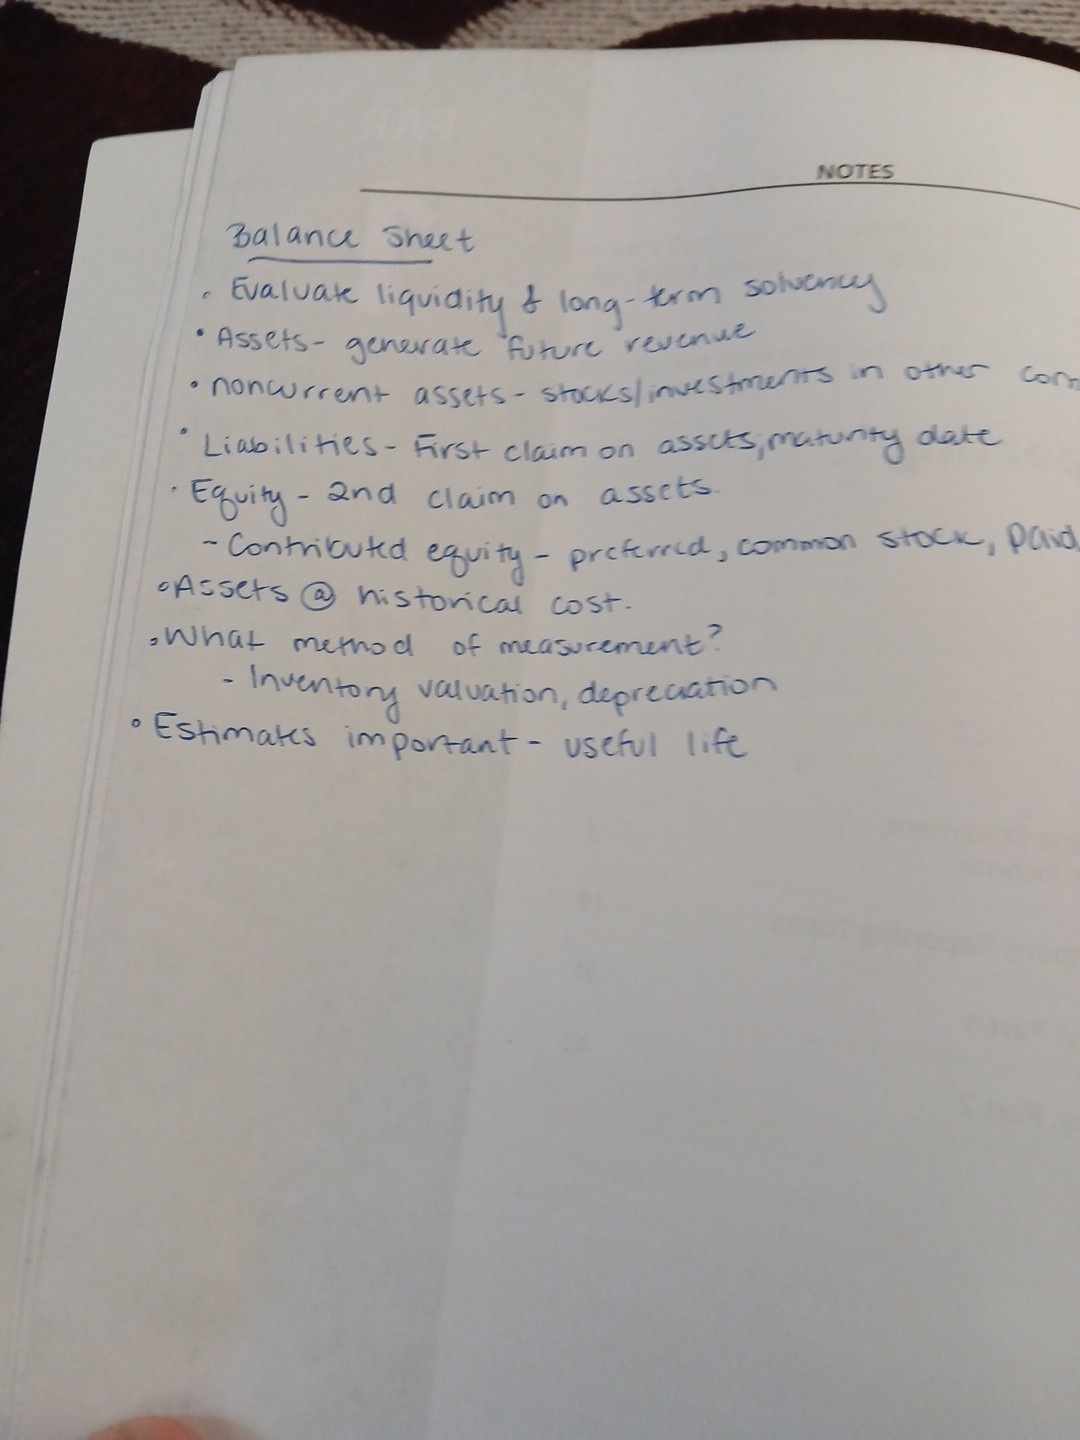 NOTES
Balance Sheet
• Evaluate liquidity & long-term solvency
• Assets - generate future revenue
• noncurrent assets - stocks/investments in other com
• Liabilities - First claim on assets; maturity date
• Equity - 2nd claim on assets.
- Contributed equity - preferred, common stock, paid
• Assets @ historical cost.
• What method of measurement?
- Inventory valuation, depreciation
• Estimates important - useful life